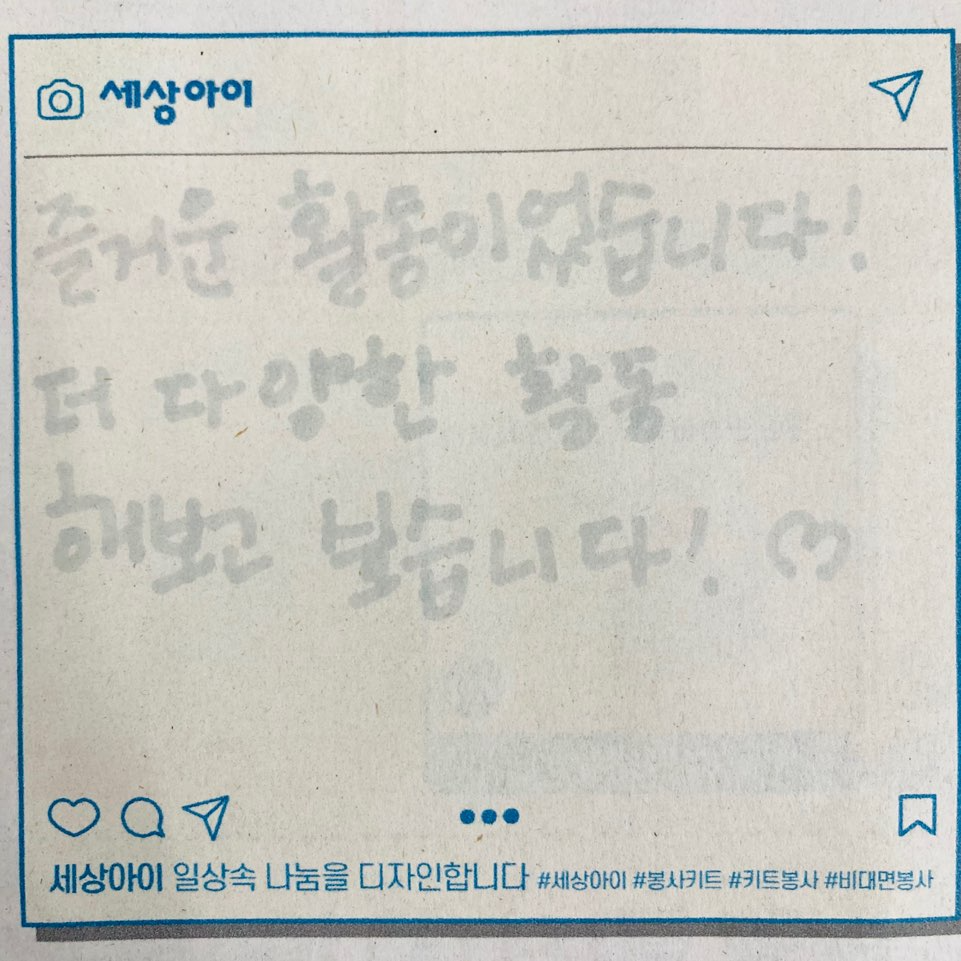 세상아이
즐거운 활동이었습니다!
더 다양한 활동
해보고 싶습니다!
세상아이 일상속 나눔을 디자인합니다 #세상아이 #봉사키트 #키트봉사 #비대면봉사